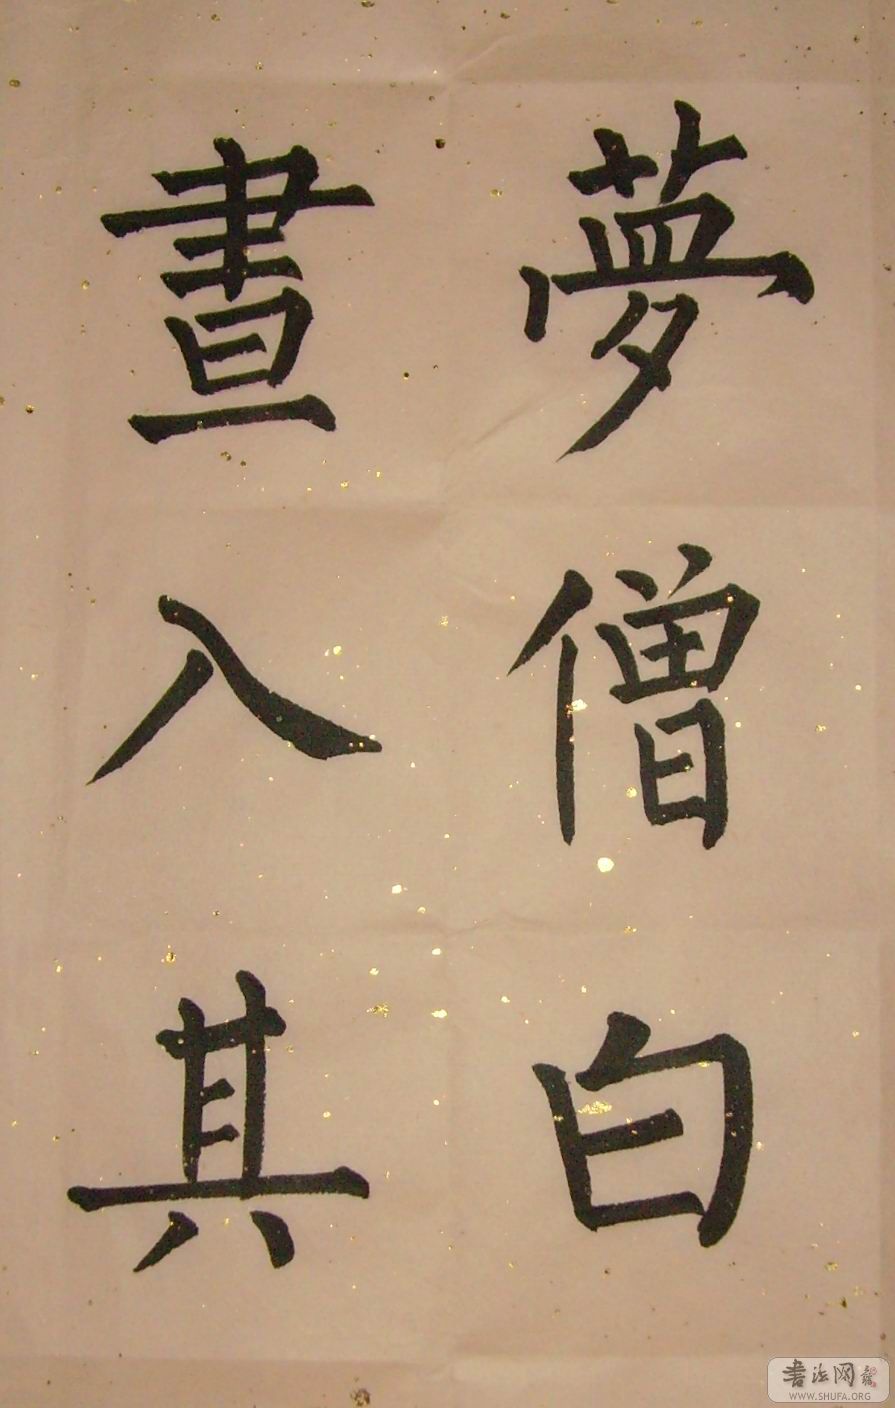 夢僧白
晝入其
書法网
WWW.SHUFA.ORG